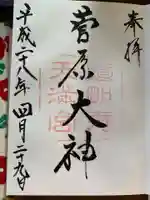 奉拝
菅原大神
平成二十八年四月二十九日
天満宮